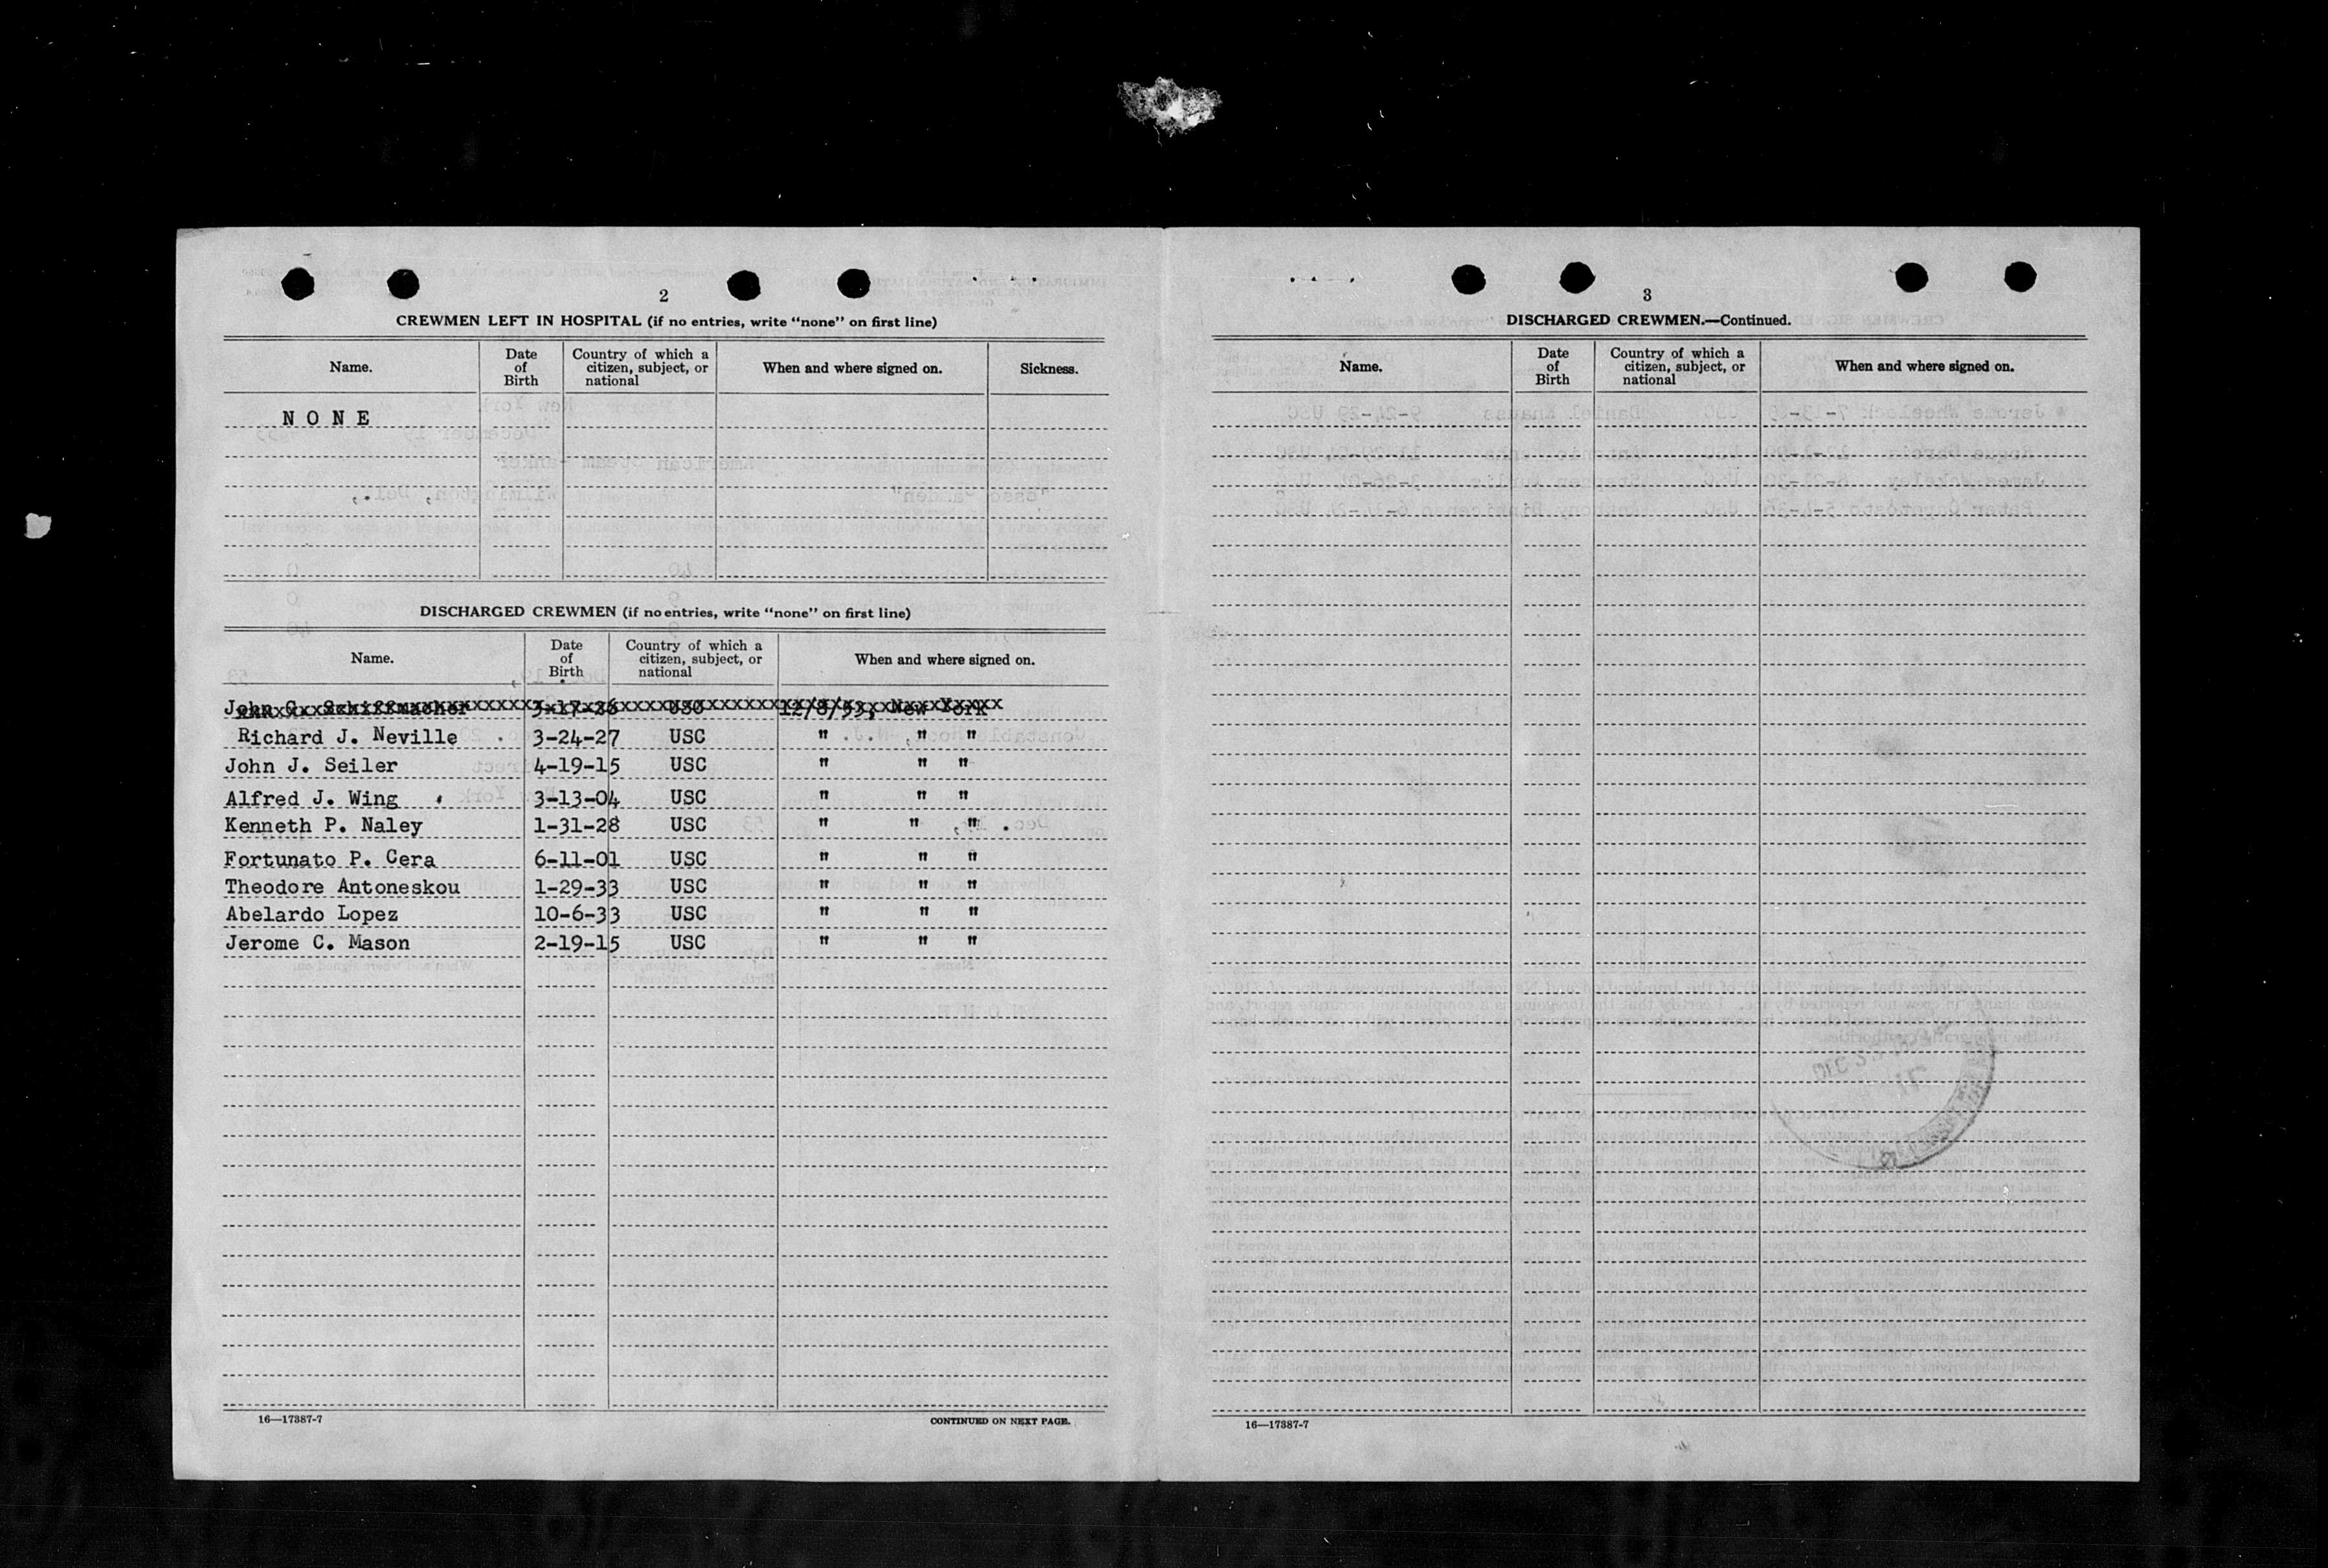 2
CREWMEN LEFT IN HOSPITAL (if no entries, write “none” on first line)
Name. Date of Birth Country of which a citizen, subject, or national When and where signed on. Sickness.
NONE
DISCHARGED CREWMEN (if no entries, write “none” on first line)
Name. Date of Birth Country of which a citizen, subject, or national When and where signed on.
John Schiffmacher 3-17-26 USC 12/8/53, New York
Richard J. Neville 3-24-27 USC " " "
John J. Seiler 4-19-15 USC " " "
Alfred J. Wing 3-13-04 USC " " "
Kenneth P. Naley 1-31-28 USC " " "
Fortunato P. Cera 6-11-01 USC " " "
Theodore Antoneskou 1-29-33 USC " " "
Abelardo Lopez 10-6-33 USC " " "
Jerome C. Mason 2-19-15 USC " " "
16—17387-7 CONTINUED ON NEXT PAGE.
3
DISCHARGED CREWMEN.—Continued.
Name. Date of Birth Country of which a citizen, subject, or national When and where signed on.
16—17387-7